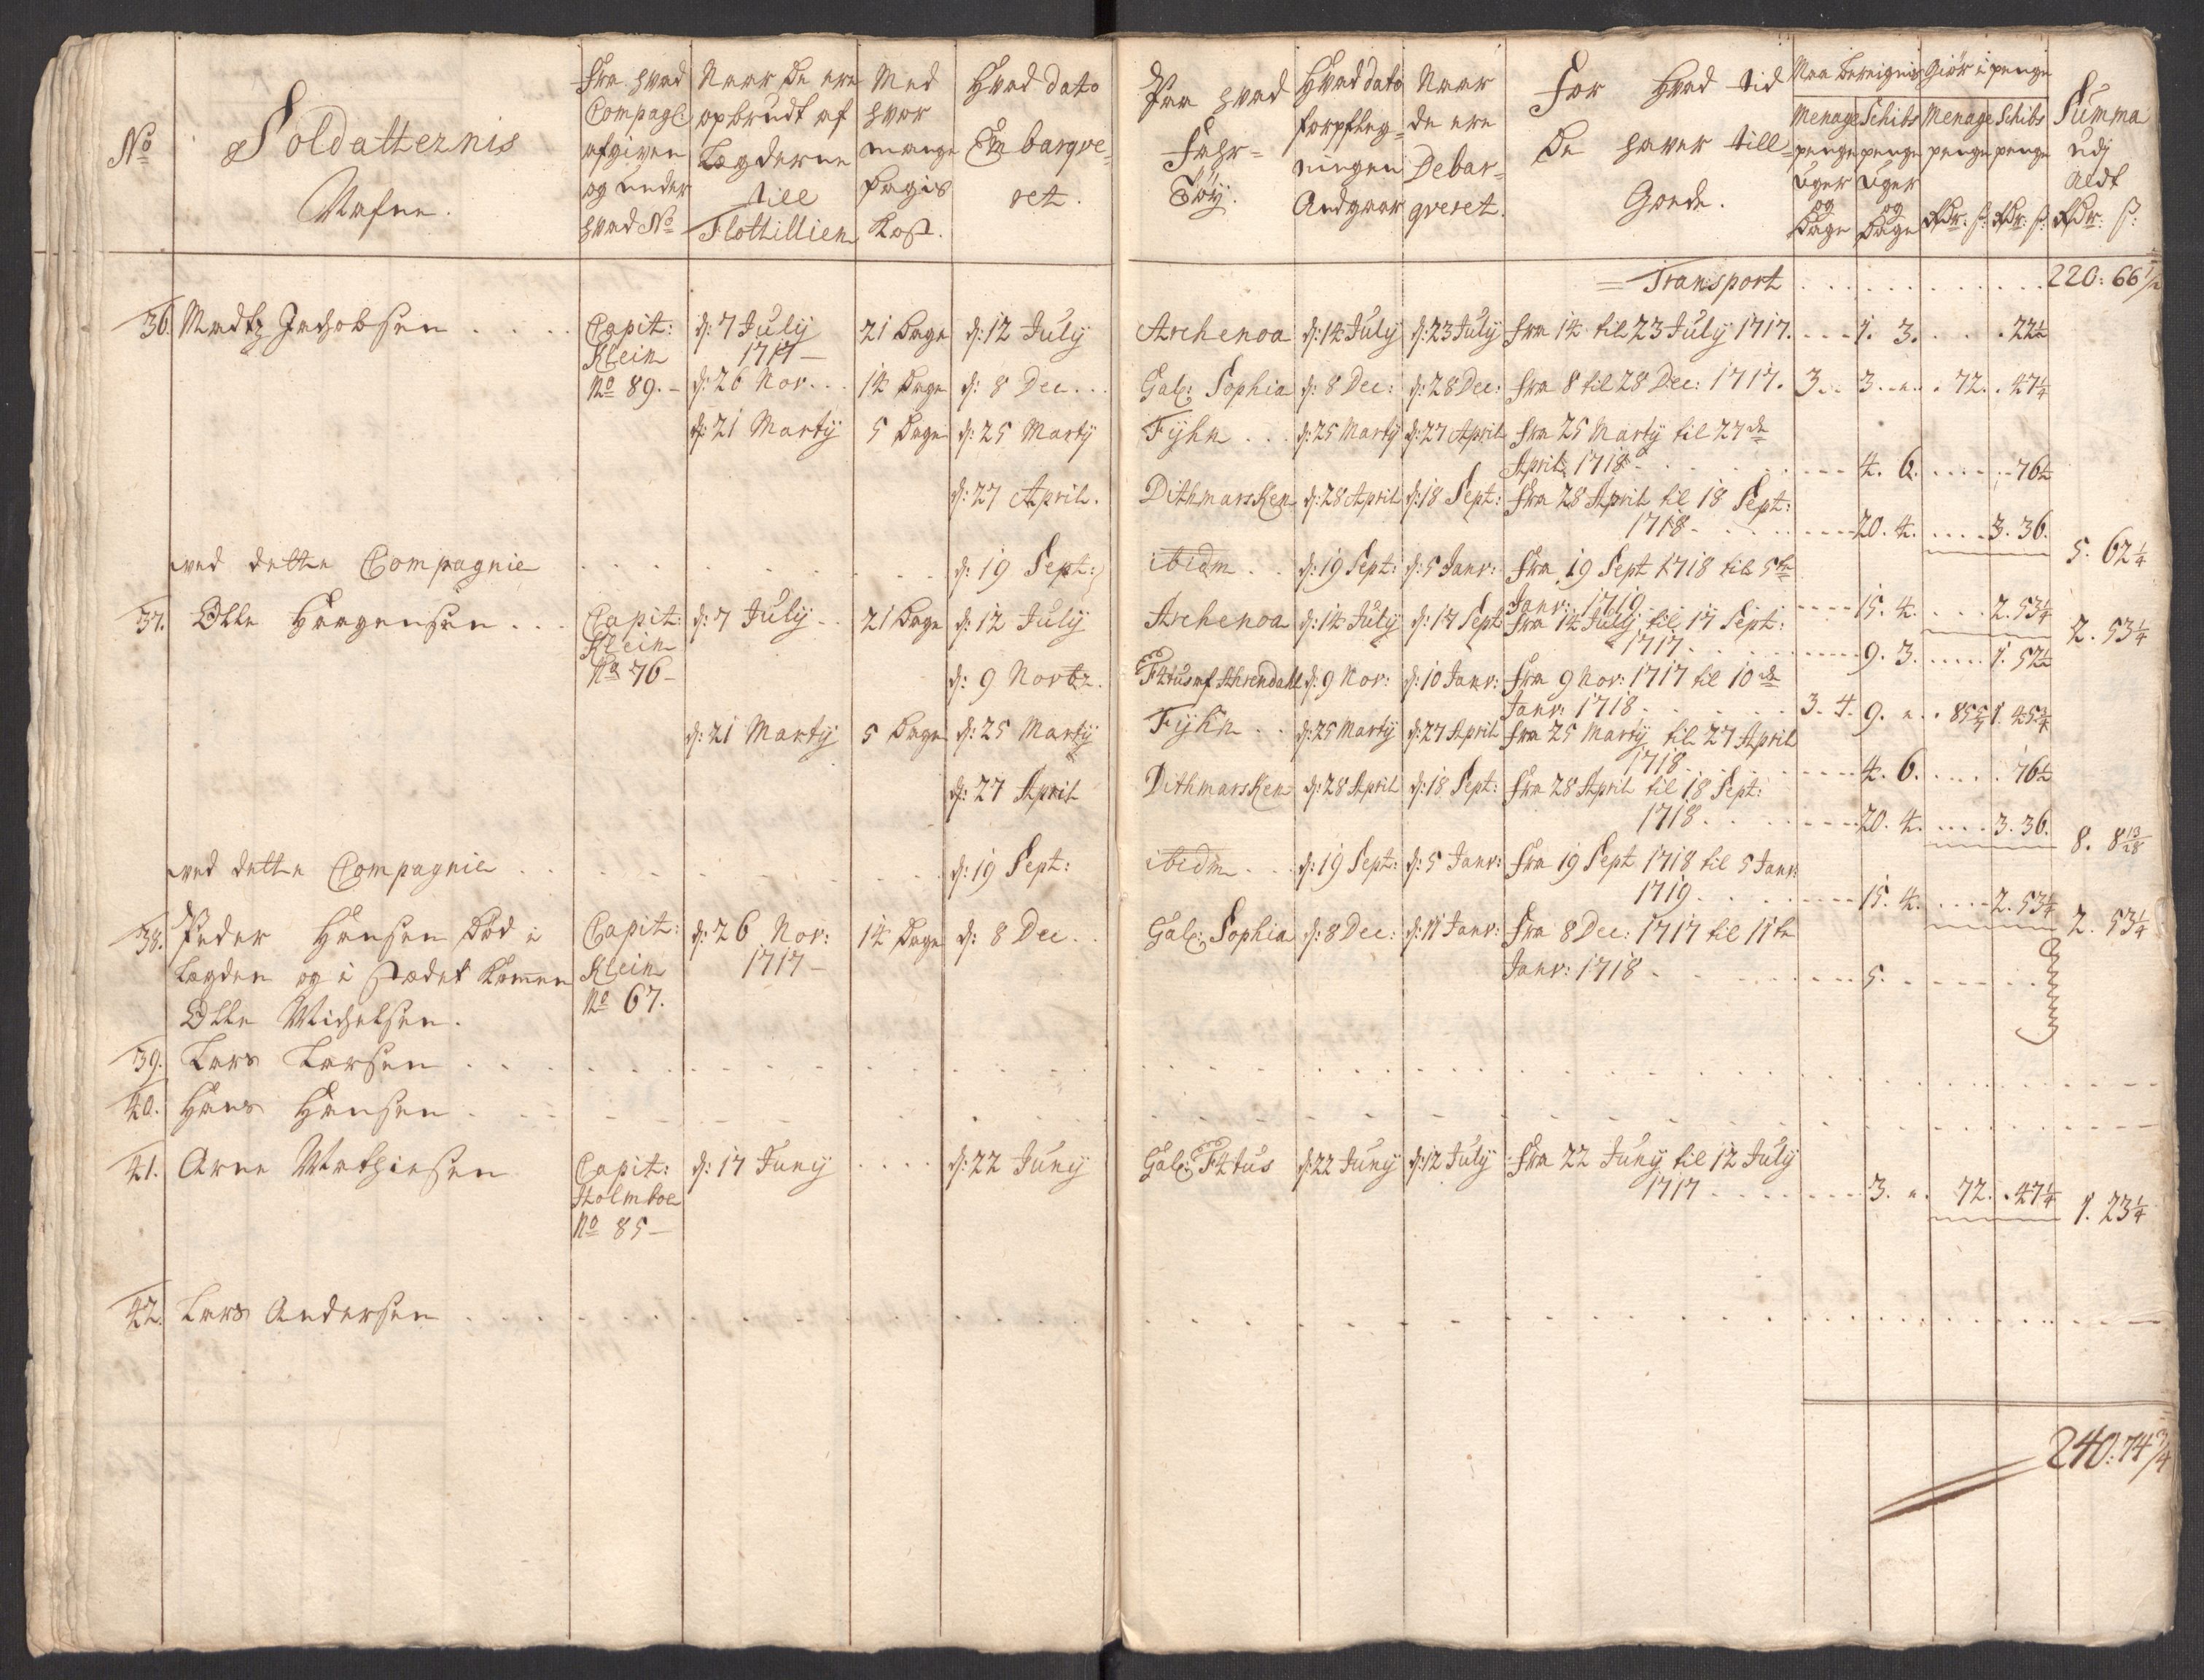 No
Soldatternis
Nafne.
Fra hvad
Compagl:
afgiven
og under
hvad No
Naar de ere
opbrudt af
Lægderne
till
Flottillien
Med
hvor
mange
Dagis
Kost.
Hvad dato
Em barqve-
ret.
Paa hvad
Fahr-
Töÿ.
Hvad dato
forpfleg-
ningen
Andgaar
Naar
de ere
Debar-
qveret.
For hvad tid
De haver till-
Gode.
Maa bereignis
Menage
penge
Uger
og
Dage
Schibs
penge
Uger
og
Dage
Giör i penge
Menage
penge
Rdr: ß:
Schibs
penge
Rdr: ß:
Summa
udj
aldt
Rdr: ß:
Transport . . . . . . . 220: 66 1/2
36. Madtz Jachobsen . . . . Capit: d: 7 July 21 Dage d: 12 July Archenoa d: 14 July d: 23 July fra 14 til 23 July 1717. - - - 1. 3. . . . . 22 1/2
Klein 1717 -
No 89. - d: 26 Nov. . . 14 Dage d: 8 Dec. . . Gal: Sophia d: 8 Dec: d: 28 Dec: fra 8 til 28 Dec: 1717. 3. . 3. - " . . 72. . 47 1/4
d: 21 Martÿ 5 Dage d: 25 Martÿ Fÿhn . . . d: 25 Martÿ d: 27 April fra 25 Martÿ til 27de
April 1718 - . . . . . . - - - 4. 6. . . . . . 76 1/2
d: 27 April. Dithmarsken d: 28 April d: 18 Sept: fra 28 April til 18 Sept:
1718 - . . . . - - - 20. 4. . . . . 3. 36.
5. 62 1/4
ved dette Compagnie . . . . . . . . d: 19 Sept: ibidm . . d: 19 Sept: d: 5 Janv: fra 19 Sept 1718 til 5te
Janv: 1719 . . . . - - - 15. 4. . . . 2. 53 1/4
2. 53 1/4
37. Olle Haagensen . . . Capit: d: 7 July . . 21 Dage d: 12 July Archenoa d: 14 July d: 17 Sept fra 14 July til 17 Sept:
Klein 1717 . . . . . - - - 9. 3. . . . . . 1. 52 1/2
No 76 - d: 9 Novbr. Fittus af Ahrendahl d: 9 Nov: d: 10 Janv: fra 9 Nov: 1717 til 10de
Janv: 1718 - . . . . . 3. 4. 9. " . . 85 5/7 1. 45 3/4
d: 21 Martÿ 5 Dage d: 25 Martÿ Fÿhn . . d: 25 Martÿ d: 27 April fra 25 Martÿ til 27 April
1718 . . . . - - - 4. 6. . . . . . 76 1/2
d: 27 April Dithmarsken d: 28 April d: 18 Sept: fra 28 April til 18 Sept:
1718 . . . . - - - 20. 4. . . . . 3. 36.
8. 8 13/28
ved dette Compagnie . . . . . . . . d: 19 Sept: ibidm . . . d: 19 Sept: d: 5 Janv: fra 19 Sept 1718 til 5 Janv:
1719 . . . . - - - 15. 4. . . . . 2. 53 1/4
2. 53 1/4
38. Peder Hansen död i Capit: d: 26 Nov: 14 Dage d: 8 Dec . . Gal: Sophia d: 8 Dec: d: 11 Janv: fra 8 Dec: 1717 til 11te
Lægden og i stædet kommen Klein 1717 - Janv: 1718 - . . . . . - - - 5. . . . . .
Olle Michelsen. No 67.
39. Lars Larsen . . . . . . . . . . . .
40. Hans Hansen . . . . . . . . . . . .
41. Arne Mathiesen Capit: d: 17 Junÿ . . . . d: 22 Junÿ Gal: Fittus d: 22 Junÿ d: 12 Julÿ fra 22 Junÿ til 12 Julÿ
Holmboe 1717 . . . . - - - 3. " . 72. . 47 1/4
No 85 - 1. 23 1/4
42. Lars Andersen . . . . . . . . . . . .
240: 74 3/4